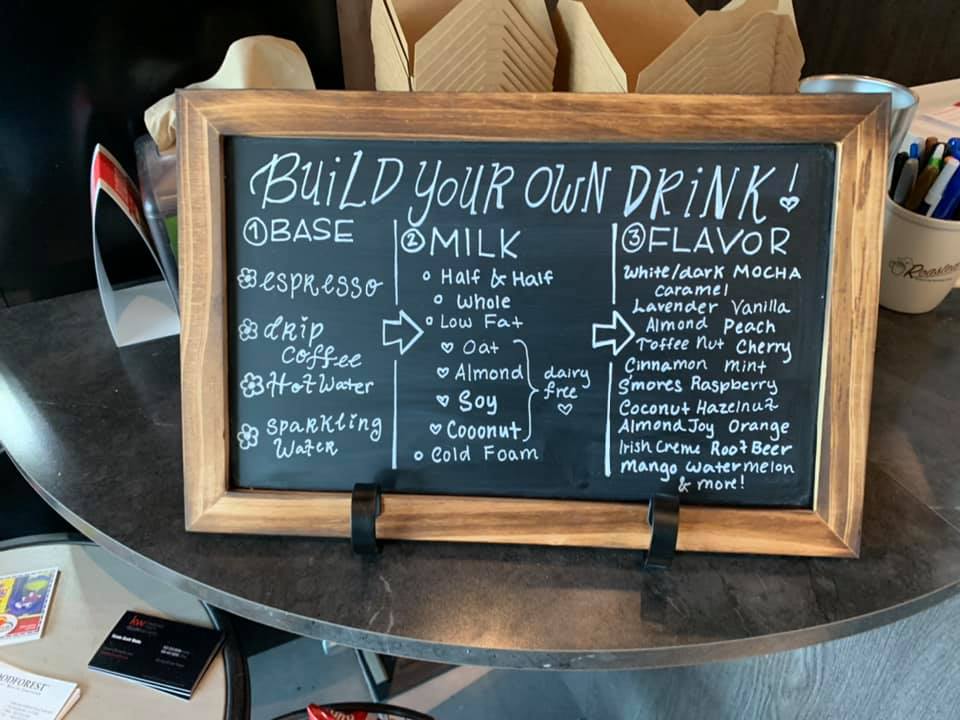 BUILD YOUR OWN DRINK!
① BASE
espresso
drip
Coffee
Hot Water
sparkling
Water
② MILK
Half & Half
Whole
Low Fat
Oat
Almond
Soy
Coconut
dairy
free
Cold Foam
③ FLAVOR
White/dark MOCHA
caramel
Lavender Vanilla
Almond Peach
Toffee Nut Cherry
Cinnamon mint
S'mores Raspberry
Coconut Hazelnut
Almond Joy Orange
Irish Creme Root Beer
Mango Watermelon
& more!
kw